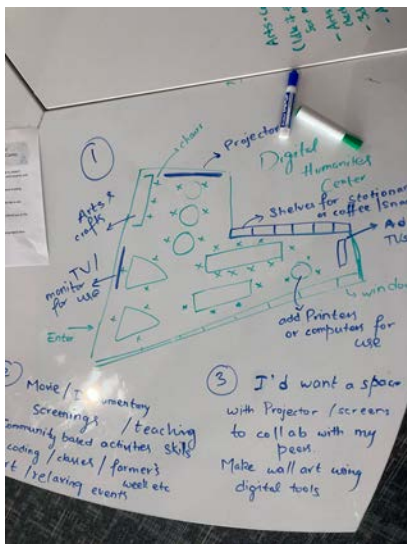 Arts
chairs
Projector
1
Digital
Humanities
Center
Arts &
craft
Shelves for Stationary
or coffee /Snac
Ad
TVs
TV/
monitor
for use
window
Enter
add Printers
or computers for
use
2
Movie/Documentary
Screenings /teaching
Community based activites skills
coding /classes /farmer's
week etc
/relaxing events
3 I'd want a space
with Projector /screens
to collab with my
peers.
Make wall art using
digital tools